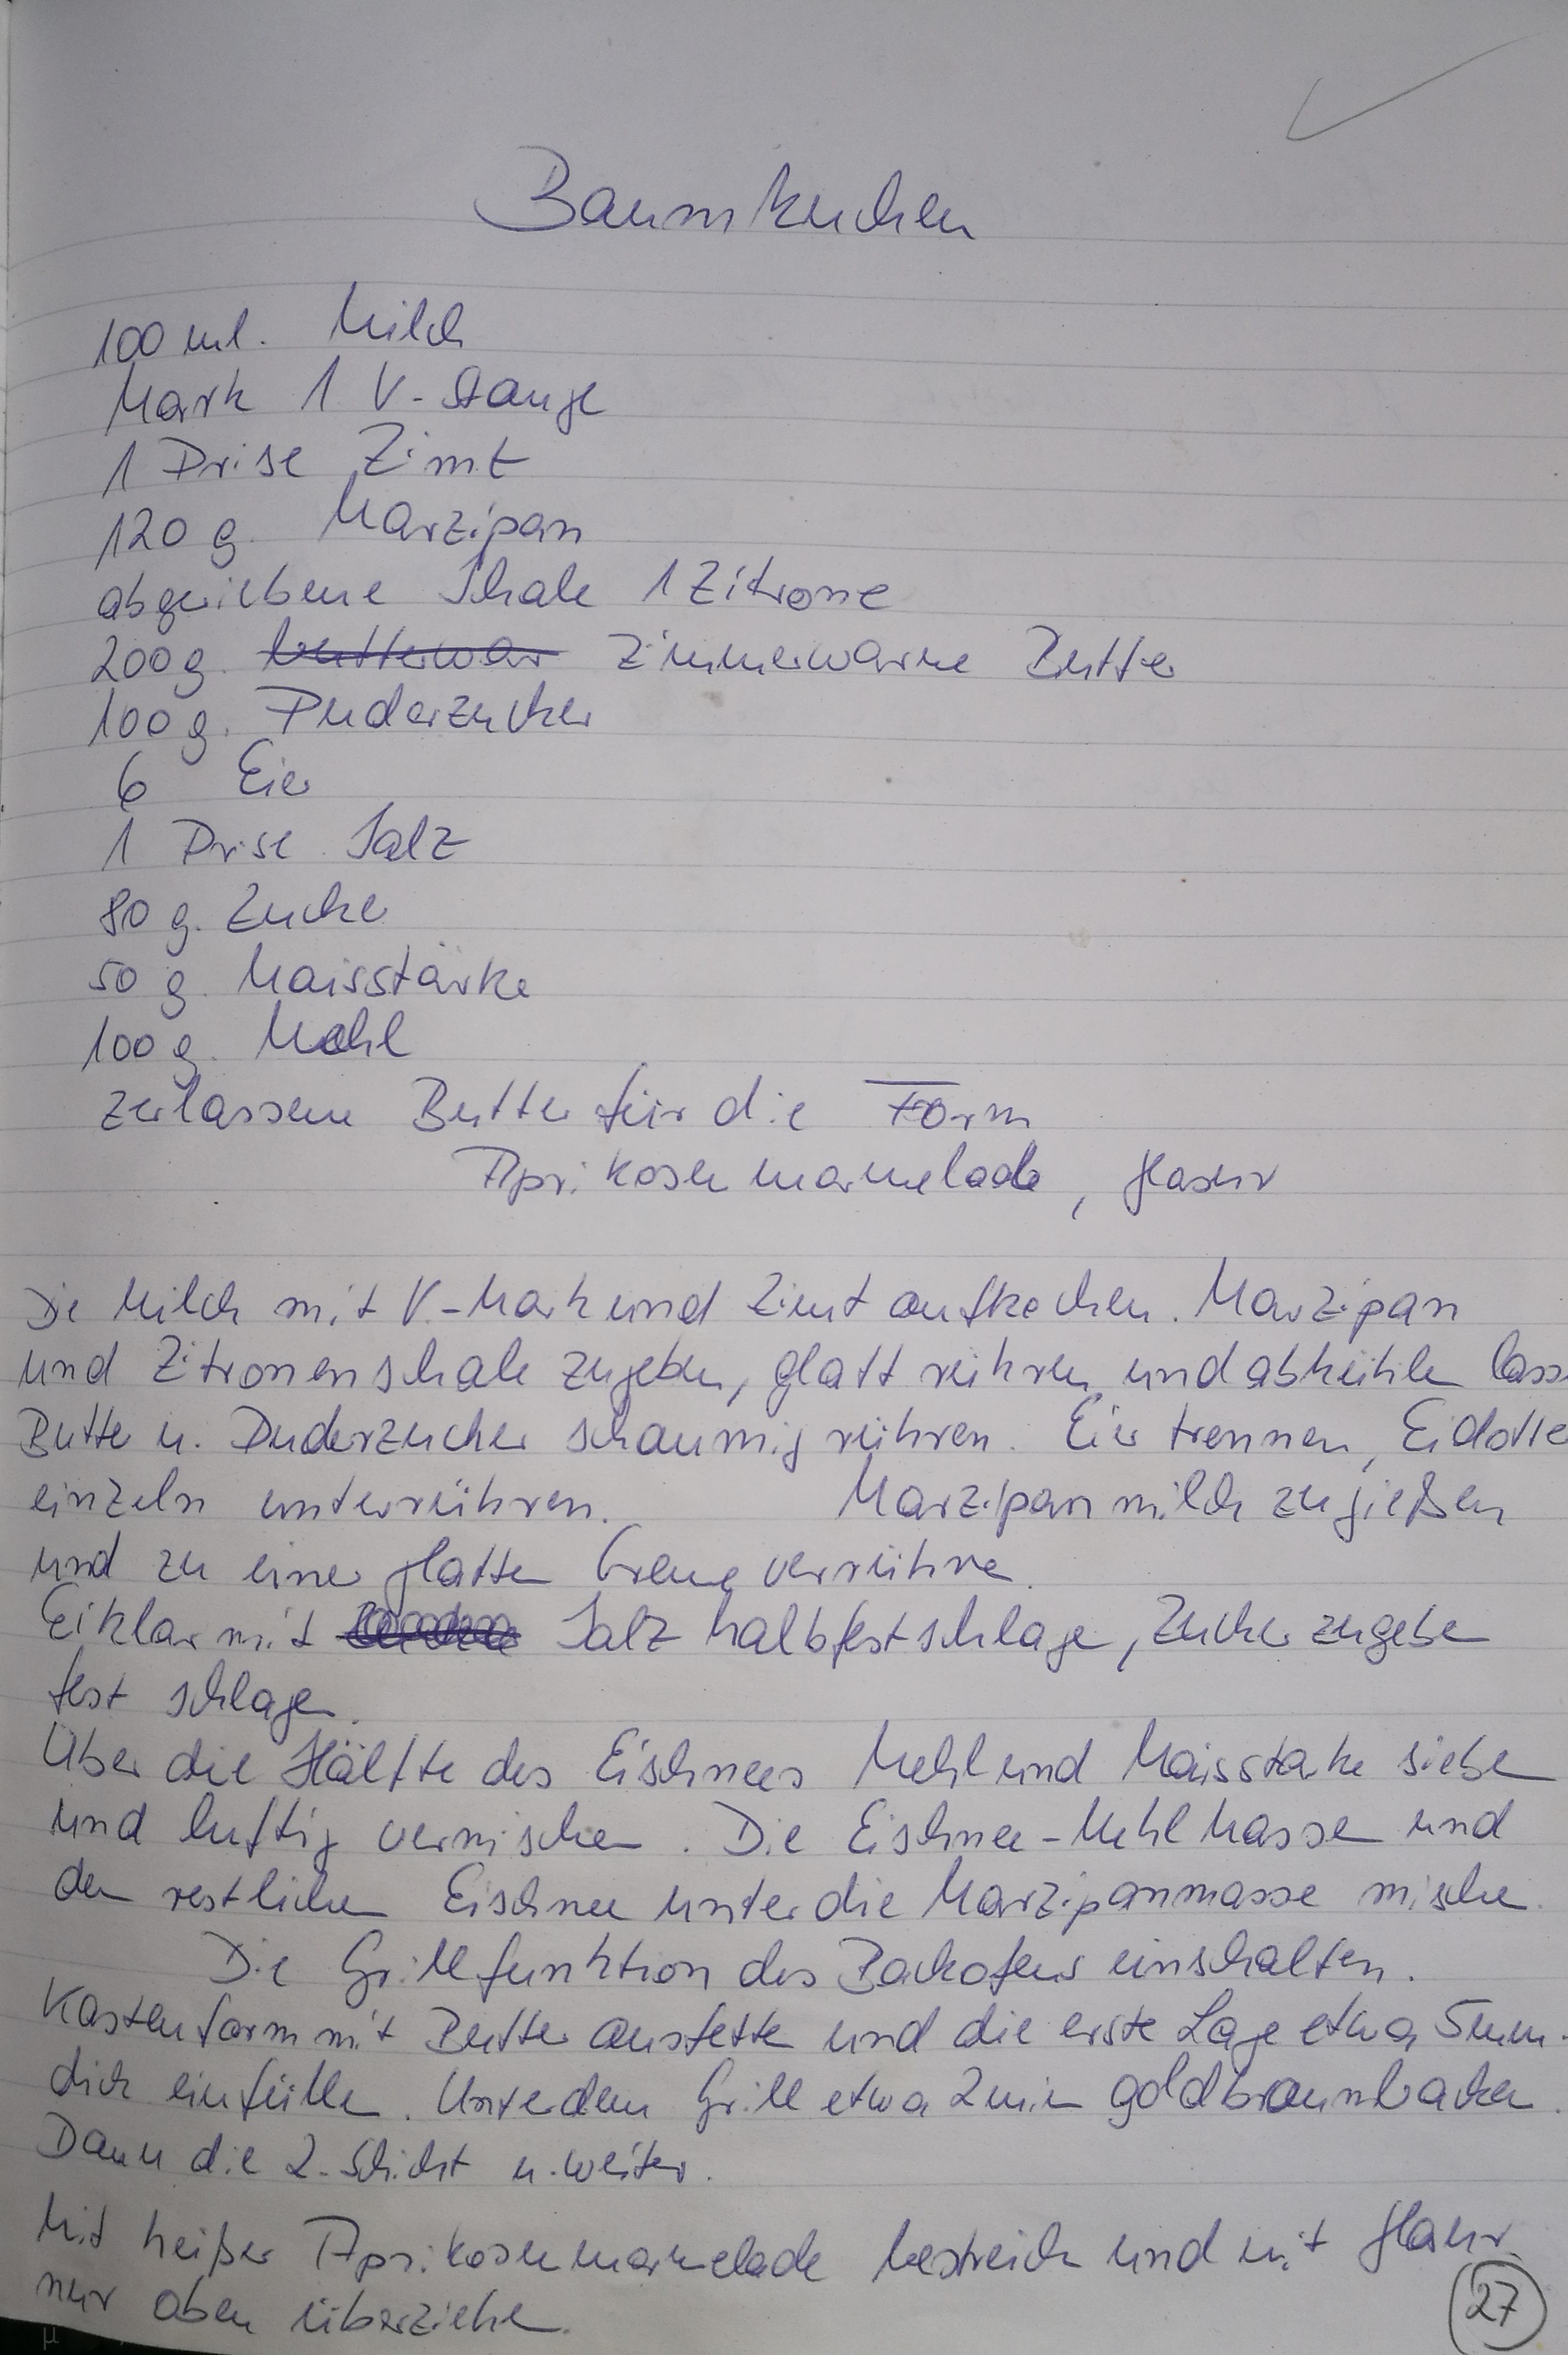 Baumkuchen
100 ml. Milch
Mark 1 V-Stange
1 Prise Zimt
120 g. Marzipan
abgeriebene Schale 1 Zitrone
200 g. butterwar Zimmerwarme Butter
100 g. Puderzucker
6 Eier
1 Prise Salz
80 g. Zucker
50 g. Maisstärke
100 g. Mehl
zerlassene Butter für die Form
Aprikosenmarmelade, Glasur
Die Milch mit V-Mark und Zimt aufkochen. Marzipan
und Zitronenschale zugeben, glatt rühren und abkühlen lass
Butter u. Puderzucker schaumig rühren. Eier trennen, Eidotte
einzeln unterrühren. Marzipanmilch zugießen
und zu einer glatten Creme verrühren.
Eiklar mit Salz halbfest schlagen, Zucker zugeben
fest schlagen.
Über die Hälfte des Eischnees Mehl und Maisstärke sieben
und luftig vermischen. Die Eischnee-Mehlmasse und
den restlichen Eischnee unter die Marzipanmasse mischen.
Die Grillfunktion des Backofens einschalten.
Kastenform mit Butter ausfetten und die erste Lage etwa 5mm.
dick einfüllen. Unter dem Grill etwa 2 min goldbraun backen.
Dann die 2. Schicht u. weiter.
Mit heißer Aprikosenmarmelade bestreichen und mit Glasur
nur oben überziehen.
27